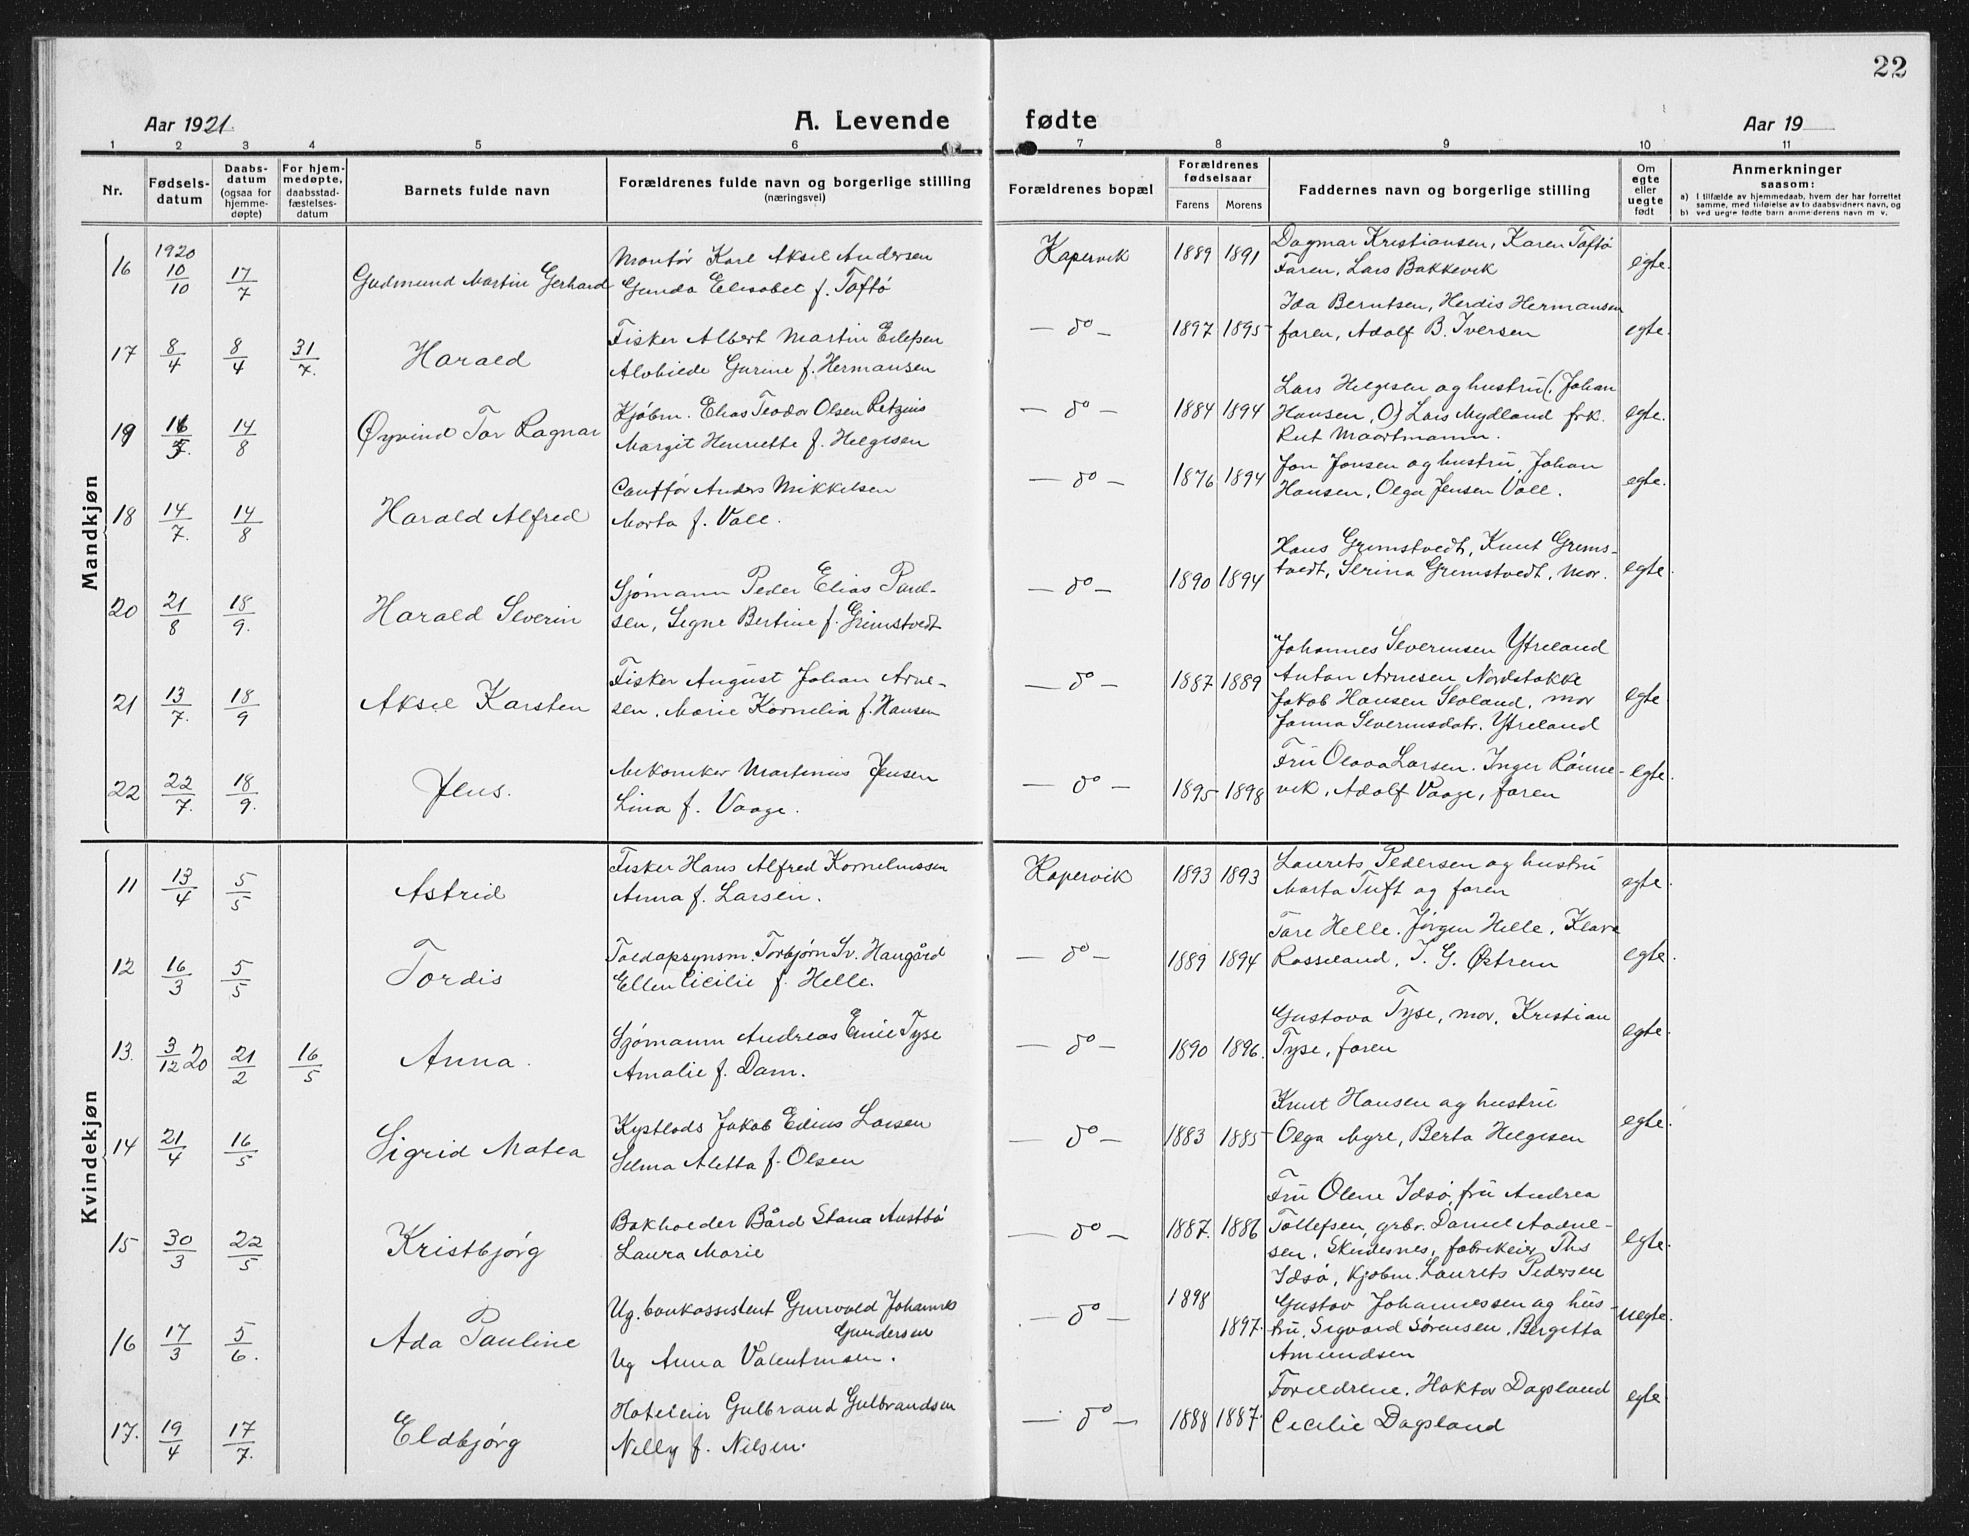 22
Aar 1921. A. Levende fødte Aar 19
1 2 3 4 5 6 7 8 9 10 11
Nr. Fødselsdatum Daabsdatum (ogsaa for hjemmedøpte) For hjemmedøpte, daabsstadfæstelsesdatum Barnets fulde navn Forældrenes fulde navn og borgerlige stilling (næringsvei) Forældrenes bopæl Forældrenes fødselsaar Farens Morens Faddernes navn og borgerlige stilling Om egte eller uegte født Anmerkninger saasom:
a) I tilfælde av hjemmedaab, hvem der har forrettet samme, med tilføielse av to daabsvidners navn, og
b) ved uegte fødte barn anmelderens navn m. v.
Mandkjøn
16 1920 10/10 17/7 Gudmund Martin Gerhard Montør Karl Aksel Andersen Kopervik 1889 1891 Dagmar Kristiansen, Karen Toftø egte.
Gunda Elisabet f. Toftø Faren, Lars Bakkevik
17 8/4 8/4 31/7. Harald Fisker Albert Martin Eilefsen — do — 1897 1895 Ida Berntsen, Herdis Hermansen egte.
Alvhilde Gurine f. Hermansen faren, Adolf B. Iversen
19 16/5. 14/8 Øyvind Tor Ragnar Kjøbm. Elias Teodor Olsen Retzius — do — 1884 1894 Lars Helgesen og hustru (Johan egte.
Margit Henriette f. Helgesen Hansen, O) Lars Mydland frk.
Rut Maartmann.
18 14/7. 14/8 Harald Alfred Anders Mikkelsen — do — 1876 1894 Jon Jonsen og hustru, Johan egte.
Marta f. Vall. Hansen, Olga Jensen Vall.
20 21/8 18/9. Harald Severin Sjømann Peder Elias Paul- — do — 1890 1894 Hans Grimstvedt, Knut Grims- egte.
sen, Signe Bertine f. Grimstvedt tvedt, Serina Grimstvedt, mor.
21 13/7. 18/9 Aksel Karsten Fisker August Johan Arne- — do — 1887 1889 Johannes Severinsen Ytreland egte
sen, Marie Kornelia f. Hansen Anton Arnesen Nordstokke
Jakob Hansen Sæland, mor
Janna Severinsdatr. Ytreland
22 22/7. 18/9. Jens. Mekaniker Martinius Jensen — do — 1895 1898 Fru Olava Larsen. Inger Rønne- egte.
Lina f. Vaage. vik, Adolf Vaage, faren
Kvindekjøn
11 13/4 5/5 Astrid Fisker Hans Alfred Kornelinssen Kopervik 1893 1893 Laurits Pedersen og hustru egte.
Anna f. Larsen. Marta Tuft og faren
12 16/3 5/5 Tordis Toldopsynsm. Torbjørn Sv. Haugård — do — 1889 1894 Tore Helle. Jørgen Helle, Klara egte.
Ellen Cicilie f. Helle. Rosseland, T. G. Østrem
13. 3/12 20 21/2 16/5 Anna. Sjømann Andreas Emil Tyse — do — 1890 1896. Gustava Tyse, mor, Kristian egte.
Amalie f. Dam. Tyse, faren
14 21/4 16/5 Sigrid Matea Kystlods Jakob Edius Larsen — do — 1883 1885 Knut Hansen og hustru egte.
Selma Aletta f. Olsen Olga Myre, Berta Helgesen
15 30/3 22/5 Kristbjørg Bokholder Bård Stana Austbø — do — 1887. 1886 Fru Olene Idsø, fru Andrea egte.
Laura Marie Tollefsen, grbr. Daniel Aadne-
sen, Skudesnes, fabrikeier Ths
Idsø, Kjøbm. Laurits Pedersen
16 17/3 5/6. Ada Pauline Ug. bankassistent Gunvald Johannes — do — 1898 1897. Gustav Johannessen og hus- uegte.
Gundersen tru, Sigvard Sørensen, Bergitta
Ug Anna Valentinsen. Amundsen
17. 19/4 17/7. Eldbjørg Hoteleier Gulbrand Gulbrandsen — do — 1888 1887. Foreldrene. Haktor Dagsland egte.
Nelly f. Nilsen. Cecilie Dagsland